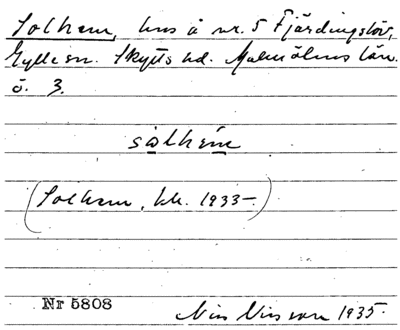 Solhem, hus å nr. 5 Fjärdingslöv,
Gylle sn. Skytts hd. Malmöhus län.
ö. 3.
solhém
(Solhem, kk. 1933-)
Nr 5808
Nils Nilsson 1935.